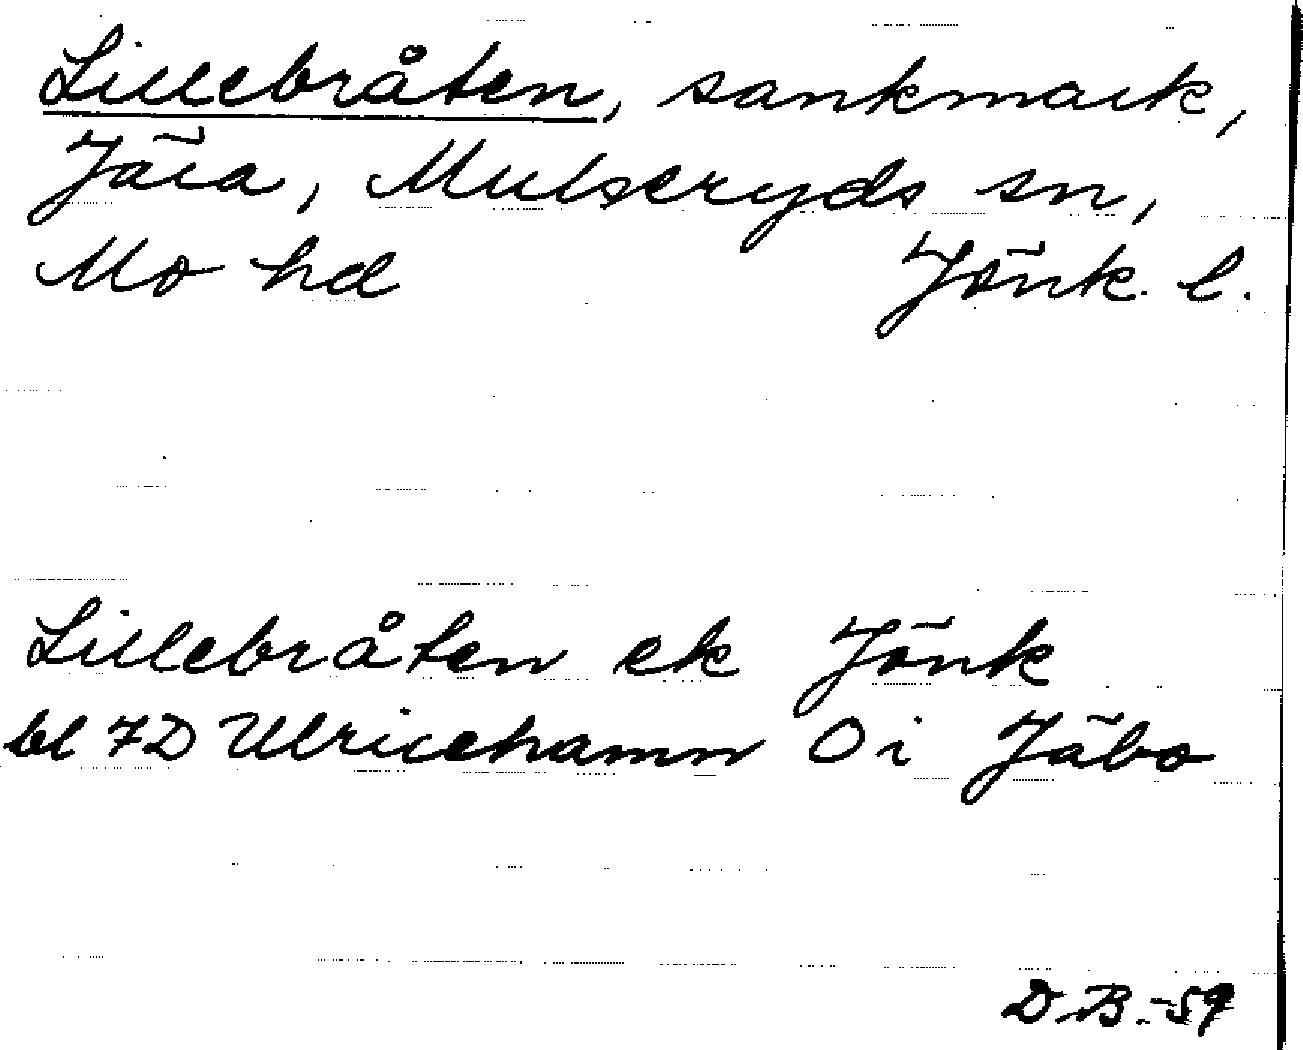 Lillebråten, sankmark,
Jära, Mulseryds sn,
Mo hd Jönk. l.
Lillebråten ek Jönk
bl 7D Ulricehamn Oi Jäbo
D.B.-59